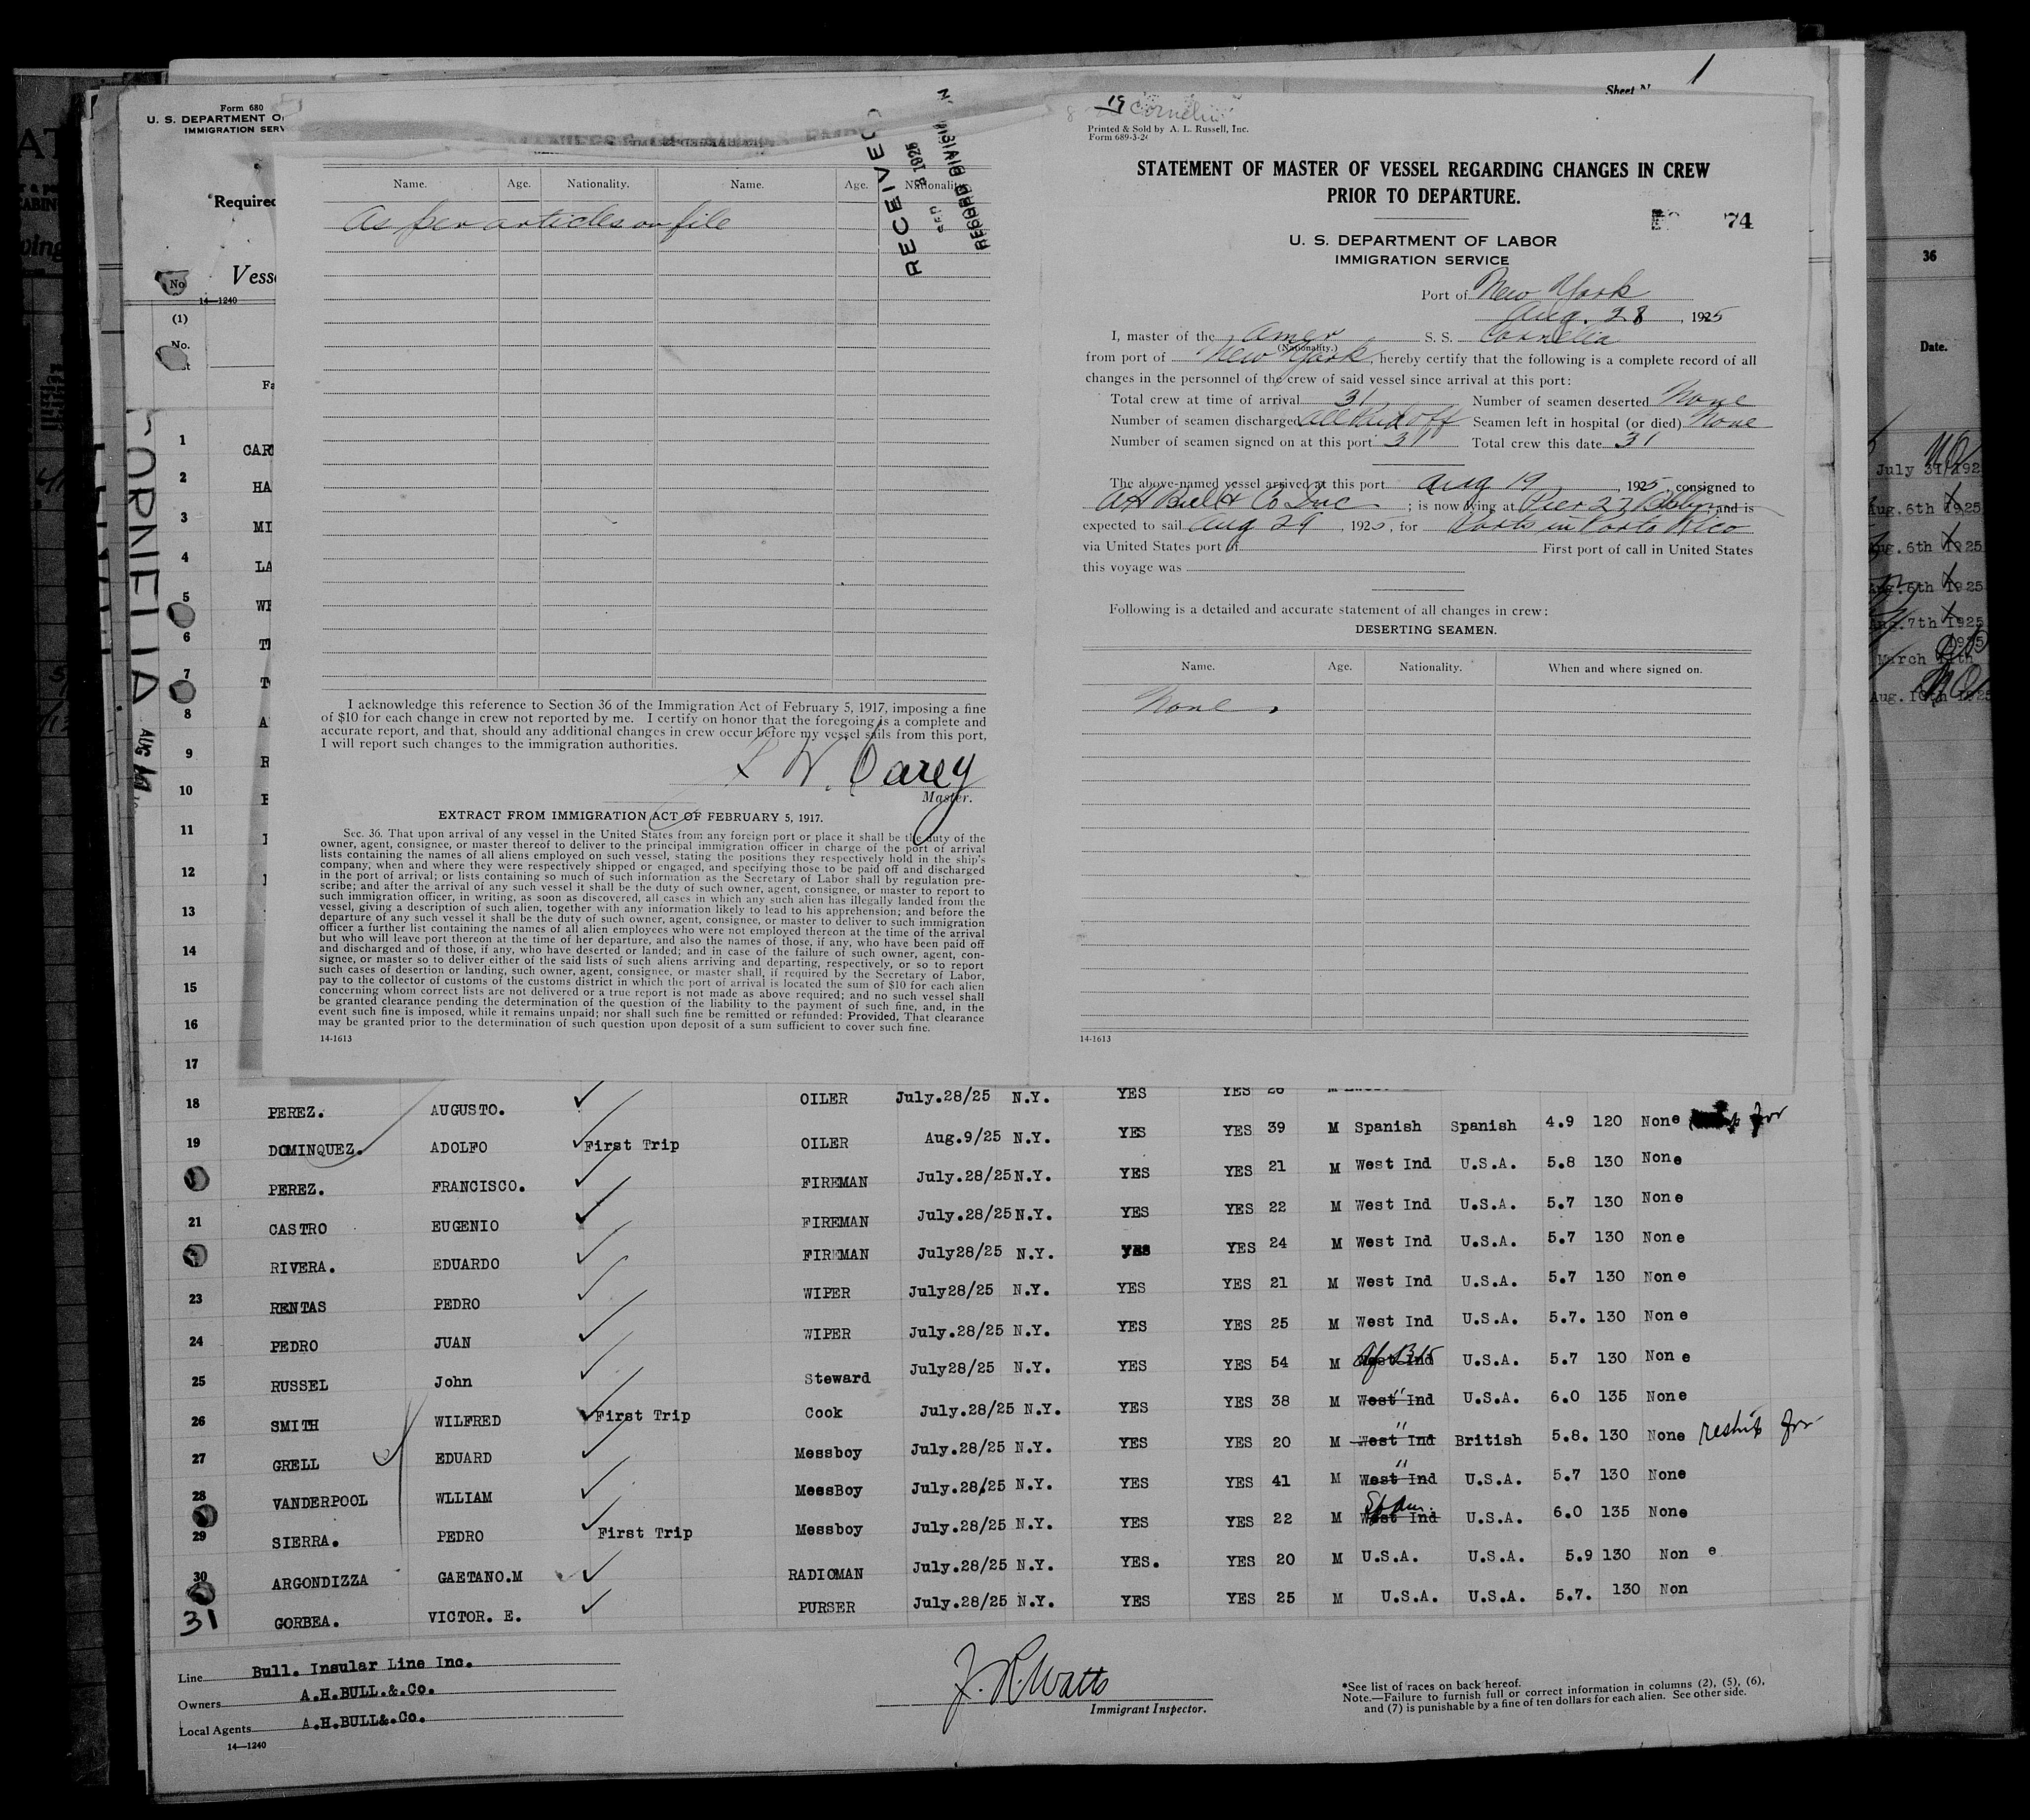 Sheet N 1
Form 680
U. S. DEPARTMENT O
IMMIGRATION SERV
Required
Vess
No
14—1240
(1)
No.
Fa
CORNELIA
AUG
1 CAR
2 HA
3 MI
4 LA
5 WE
6 TH
7 TO
8 A
9 R
10
11
12
13
14
15
16
17
Name. Age. Nationality. Name. Age. Nationality
As per articles on file
RECEIVED
1925
RECORD DIVISION
I acknowledge this reference to Section 36 of the Immigration Act of February 5, 1917, imposing a fine
of $10 for each change in crew not reported by me. I certify on honor that the foregoing is a complete and
accurate report, and that, should any additional changes in crew occur before my vessel sails from this port,
I will report such changes to the immigration authorities.
W. Carey
Master.
EXTRACT FROM IMMIGRATION ACT OF FEBRUARY 5, 1917.
Sec. 36. That upon arrival of any vessel in the United States from any foreign port or place it shall be the duty of the
owner, agent, consignee, or master thereof to deliver to the principal immigration officer in charge of the port of arrival
lists containing the names of all aliens employed on such vessel, stating the positions they respectively hold in the ship's
company, when and where they were respectively shipped or engaged, and specifying those to be paid off and discharged
in the port of arrival; or lists containing so much of such information as the Secretary of Labor shall by regulation pre-
scribe; and after the arrival of any such vessel it shall be the duty of such owner, agent, consignee, or master to report to
such immigration officer, in writing, as soon as discovered, all cases in which any such alien has illegally landed from the
vessel, giving a description of such alien, together with any information likely to lead to his apprehension; and before the
departure of any such vessel it shall be the duty of such owner, agent, consignee, or master to deliver to such immigration
officer a further list containing the names of all alien employees who were not employed thereon at the time of the arrival
but who will leave port thereon at the time of her departure, and also the names of those, if any, who have been paid off
and discharged and of those, if any, who have deserted or landed; and in case of the failure of such owner, agent, con-
signee, or master so to deliver either of the said lists of such aliens arriving and departing, respectively, or so to report
such cases of desertion or landing, such owner, agent, consignee, or master shall, if required by the Secretary of Labor,
pay to the collector of customs of the customs district in which the port of arrival is located the sum of $10 for each alien
concerning whom correct lists are not delivered or a true report is not made as above required; and no such vessel shall
be granted clearance pending the determination of the question of the liability to the payment of such fine, and, in the
event such fine is imposed, while it remains unpaid; nor shall such fine be remitted or refunded: Provided, That clearance
may be granted prior to the determination of such question upon deposit of a sum sufficient to cover such fine.
14-1613
19 Cornelia
Printed & Sold by A. L. Russell, Inc.
Form 689-3-2
STATEMENT OF MASTER OF VESSEL REGARDING CHANGES IN CREW
PRIOR TO DEPARTURE.
74
U. S. DEPARTMENT OF LABOR
IMMIGRATION SERVICE
Port of New York
Aug. 28, 1925
I, master of the Amer S. S. Cornelia
(Nationality.)
from port of New York, hereby certify that the following is a complete record of all
changes in the personnel of the crew of said vessel since arrival at this port:
Total crew at time of arrival 31 Number of seamen deserted None
Number of seamen discharged all Paid off Seamen left in hospital (or died) None
Number of seamen signed on at this port 31 Total crew this date 31
The above-named vessel arrived at this port Aug 19, 1925, consigned to
A H Bull & Co Inc; is now lying at Pier 27 Bklyn and is
expected to sail Aug 29, 1925, for Ports in Porto Rico
via United States port of First port of call in United States
this voyage was
Following is a detailed and accurate statement of all changes in crew:
DESERTING SEAMEN.
Name. Age. Nationality. When and where signed on.
None.
14-1613
36
Date.
July 31/192
Aug. 6th 1925
Aug. 6th 1925
Aug. 6th 1925
Aug. 7th 1925
1925
March 11th
Aug. 10th 1925
18 PEREZ. AUGUSTO. OILER July.28/25 N.Y. YES YES 26 M
19 DOMINQUEZ. ADOLFO First Trip OILER Aug.9/25 N.Y. YES YES 39 M Spanish Spanish 4.9 120 None
PEREZ. FRANCISCO. FIREMAN July.28/25 N.Y. YES YES 21 M West Ind U.S.A. 5.8 130 None
21 CASTRO EUGENIO FIREMAN July.28/25 N.Y. YES YES 22 M West Ind U.S.A. 5.7 130 None
RIVERA. EDUARDO FIREMAN July28/25 N.Y. YES YES 24 M West Ind U.S.A. 5.7 130 None
23 RENTAS PEDRO WIPER July28/25 N.Y. YES YES 21 M West Ind U.S.A. 5.7 130 None
24 PEDRO JUAN WIPER July.28/25 N.Y. YES YES 25 M West Ind U.S.A. 5.7. 130 None
25 RUSSEL John Steward July28/25 N.Y. YES YES 54 M West Ind U.S.A. 5.7 130 None
26 SMITH WILFRED First Trip Cook July.28/25 N.Y. YES YES 38 M West Ind " U.S.A. 6.0 135 None
27 GRELL EDUARD Messboy July.28/25 N.Y. YES YES 20 M West Ind " British 5.8. 130 None
28 VANDERPOOL WLLIAM MessBoy July.28/25 N.Y. YES YES 41 M West Ind " U.S.A. 5.7 130 None
29 SIERRA. PEDRO First Trip Messboy July.28/25 N.Y. YES YES 22 M West Ind U.S.A. 6.0 135 None
30 ARGONDIZZA GAETANO.M RADIOMAN July.28/25 N.Y. YES. YES 20 M U.S.A. U.S.A. 5.9 130 Non e
31 GORBEA. VICTOR. E. PURSER July.28/25 N.Y. YES YES 25 M U.S.A. U.S.A. 5.7. 130 Non
Line Bull. Insular Line Inc.
Owners A.H.BULL.&.Co.
Local Agents A.H.BULL&.Co.
14—1240
J. R. Watts
Immigrant Inspector.
*See list of races on back hereof.
Note.—Failure to furnish full or correct information in columns (2), (5), (6),
and (7) is punishable by a fine of ten dollars for each alien. See other side.